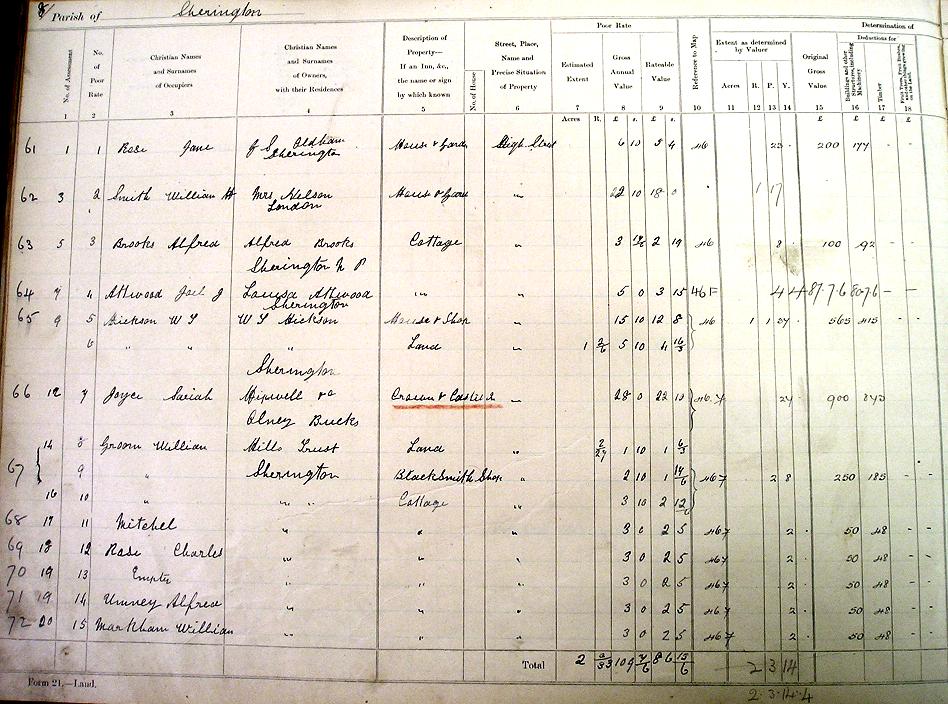 8/ Parish of Sherington
Poor Rate
Determination of
No. of Assessment
No. of Poor Rate
Christian Names and Surnames of Occupiers
Christian Names and Surnames of Owners, with their Residences
Description of Property— If an Inn, &c., the name or sign by which known
No. of House
Street, Place, Name and Precise Situation of Property
Estimated Extent
Gross Annual Value
Rateable Value
Reference to Map
Extent as determined by Valuer
Acres R. P. Y.
Original Gross Value
Deductions for
Buildings and other Structures, including Machinery
Timber
1 2 3 4 5 6 7 8 9 10 11 12 13 14 15 16 17 18
Acres R. £ s. £ s. £ £ £ £
61 1 1 Rose Jane Oldham House & Garden High Street 5 4 46 23 200 177
Sherington
62 3 2 Smith William H Mrs Nelson House & Garden " 22 10 18 0 1 17
London
63 5 3 Brooks Alfred Alfred Brooks Cottage " 3 2 19 46 8 100 92
Sherington N P
64 7 4 Attwood Joel J Louisa Attwood " " 5 0 3 15 4 4
Sherington
65 9 5 Hickson W S W S Hickson House & Shop " 15 10 12 8 46 1 1 565 415
6 " " " Land " 1 5 10 4
Sherington
66 12 7 Joyce Sarah Hipwell & Co Crown & Castle " 28 0 22 10 24 900
Olney Bucks
14 8 Groom William Mills Trust Land " 1 10 1
67 9 " Sherington Blacksmith Shop " 2 10 1 467 2 8 250 185
16 10 " " " Cottage " 3 10 2
68 17 11 Mitchel " " " 3 0 2 5 467 2 50 48
69 18 12 Rose Charles " " " 3 0 2 5 467 2 50 48
70 19 13 Empty " " " 3 0 2 5 467 2 50 48
71 19 14 Umney Alfred " " " 3 0 2 5 467 2 50 48
72 20 15 Markham William " " " 3 0 2 5 467 2 50 48
Total 2 109 86 2 3 14
Form 21.—Land.
2 . 3 . 14 . 4